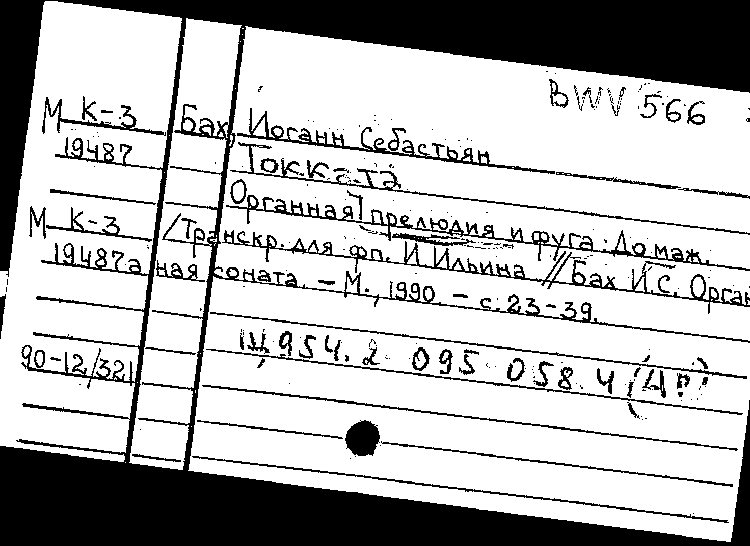 BWV 566
М К-3 Бах, Иоганн Себастьян
19487 Токката
Органная] прелюдия и фуга: До маж.
М К-3 /Транскр. для фп. И. Ильина // Бах И.С. Орган
19487а ная соната. – М., 1990. – с. 23-39.
Щ954.2 095 058.4
90-12/321